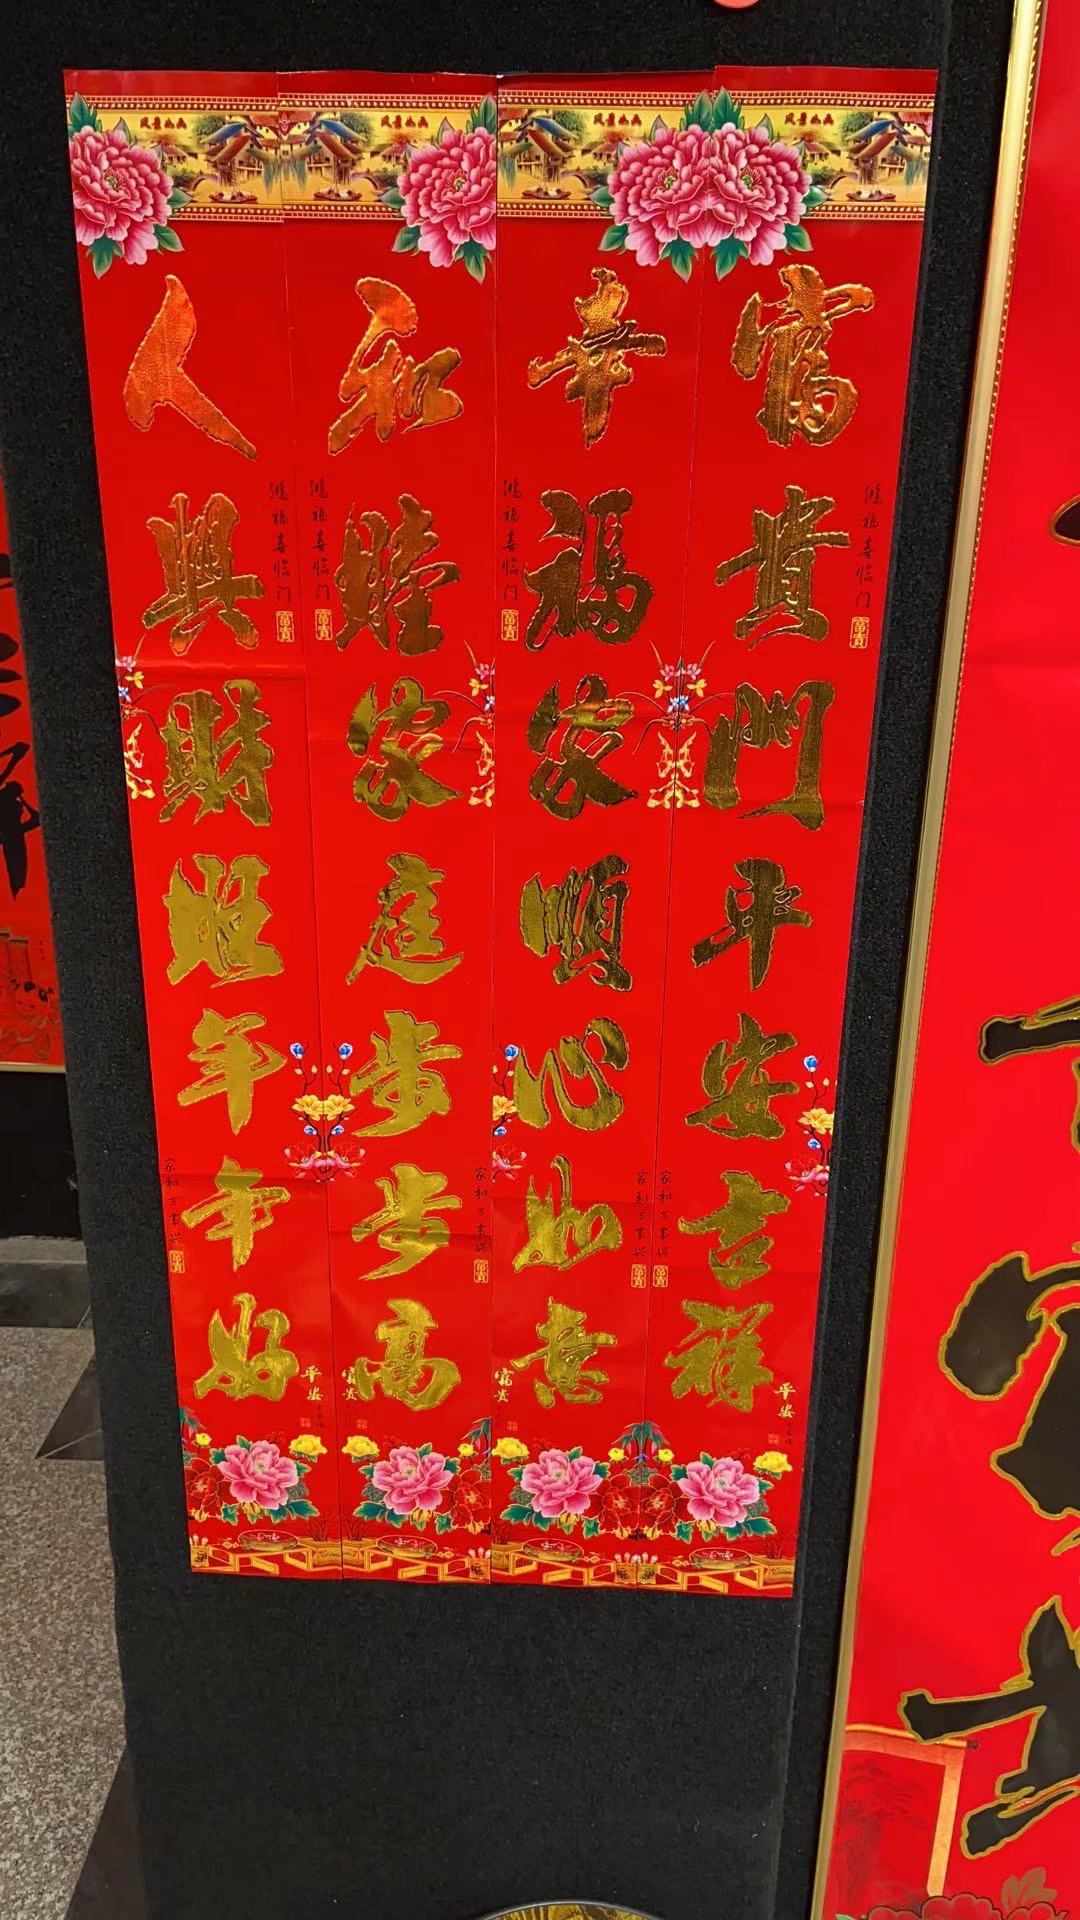 富貴門平安吉祥
幸福家順心如意
和睦家庭步步高
人興財旺年年好
鸿福喜临门
富貴
鸿福喜临门
富貴
鸿福喜临门
富貴
鸿福喜临门
富貴
家和万事兴
富貴
家和万事兴
富貴
家和万事兴
富貴
家和万事兴
富貴
平安
富貴
富貴
平安